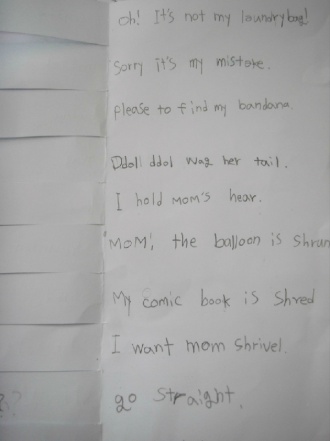 Oh! It's not my laundry bag!
Sorry it's my mistake.
please to find my bandana.
Ddol ddol wag her tail.
I hold MOM'S hear.
"MOM", the balloon is shrun
My comic book is shred
I want mom shrivel.
go straight.
??